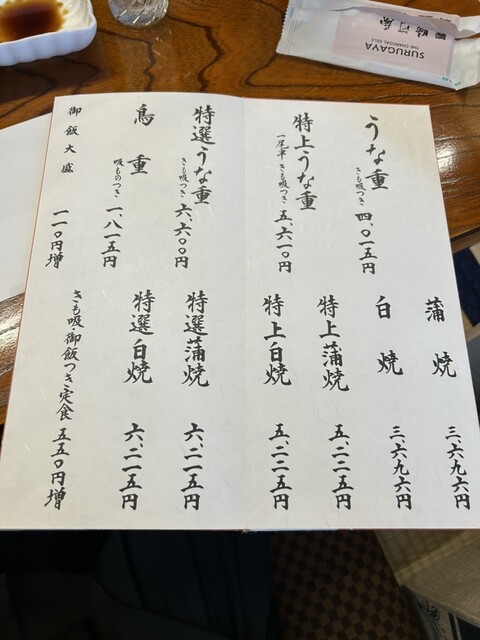 うな重 きも吸つき 四、〇一五円
特上うな重 一尾半 きも吸つき 五、六一〇円
蒲焼 三、六九六円
白焼 三、六九六円
特上蒲焼 五、二二五円
特上白焼 五、二二五円
特選うな重 きも吸つき 六、六〇〇円
鳥重 吸ものつき 一、八一五円
御飯大盛 一一〇円増
特選蒲焼 六、二一五円
特選白焼 六、二一五円
きも吸御飯つき定食 五五〇円増
SURUGAYA
THE CHARCOAL EELS